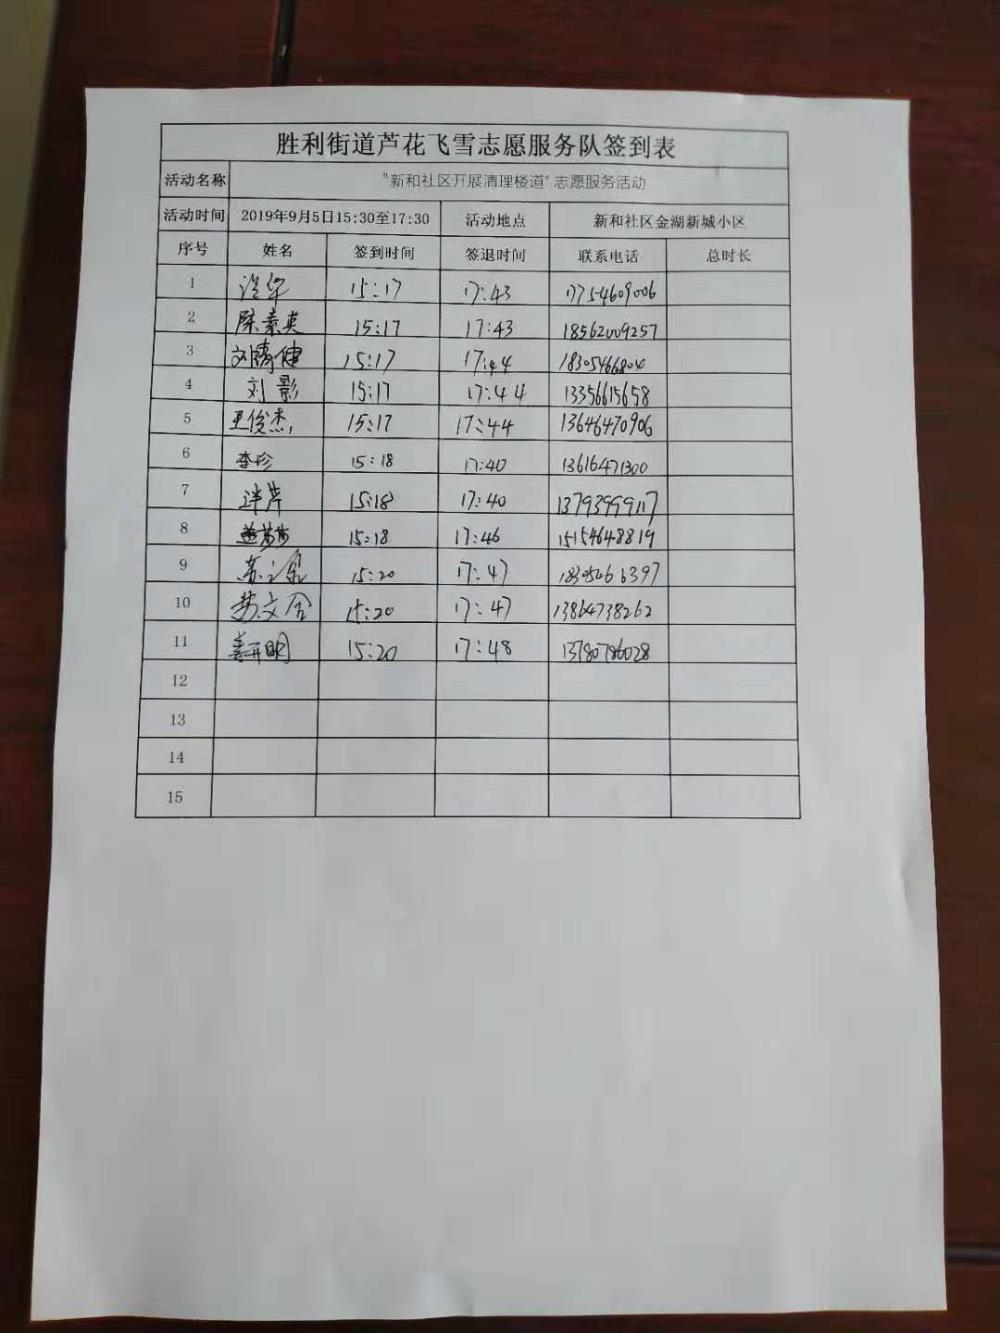 胜利街道芦花飞雪志愿服务队签到表
活动名称 "新和社区开展清理楼道"志愿服务活动
活动时间 2019年9月5日15:30至17:30 活动地点 新和社区金湖新城小区
序号 姓名 签到时间 签退时间 联系电话 总时长
1 15:17 17:43 17754609006
2 陈素英 15:17 17:43 18562009257
3 15:17 17:44
4 刘影 15:17 17:44 13356615658
5 王俊杰 15:17 17:44 13646470906
6 李珍 15:18 17:40 13616471300
7 15:18 17:40 13793999117
8 15:18 17:46 15154648819
9 15:20 17:47 18305466397
10 苏文合 15:20 17:47 13864738262
11 姜开明 15:20 17:48 13780786028
12
13
14
15